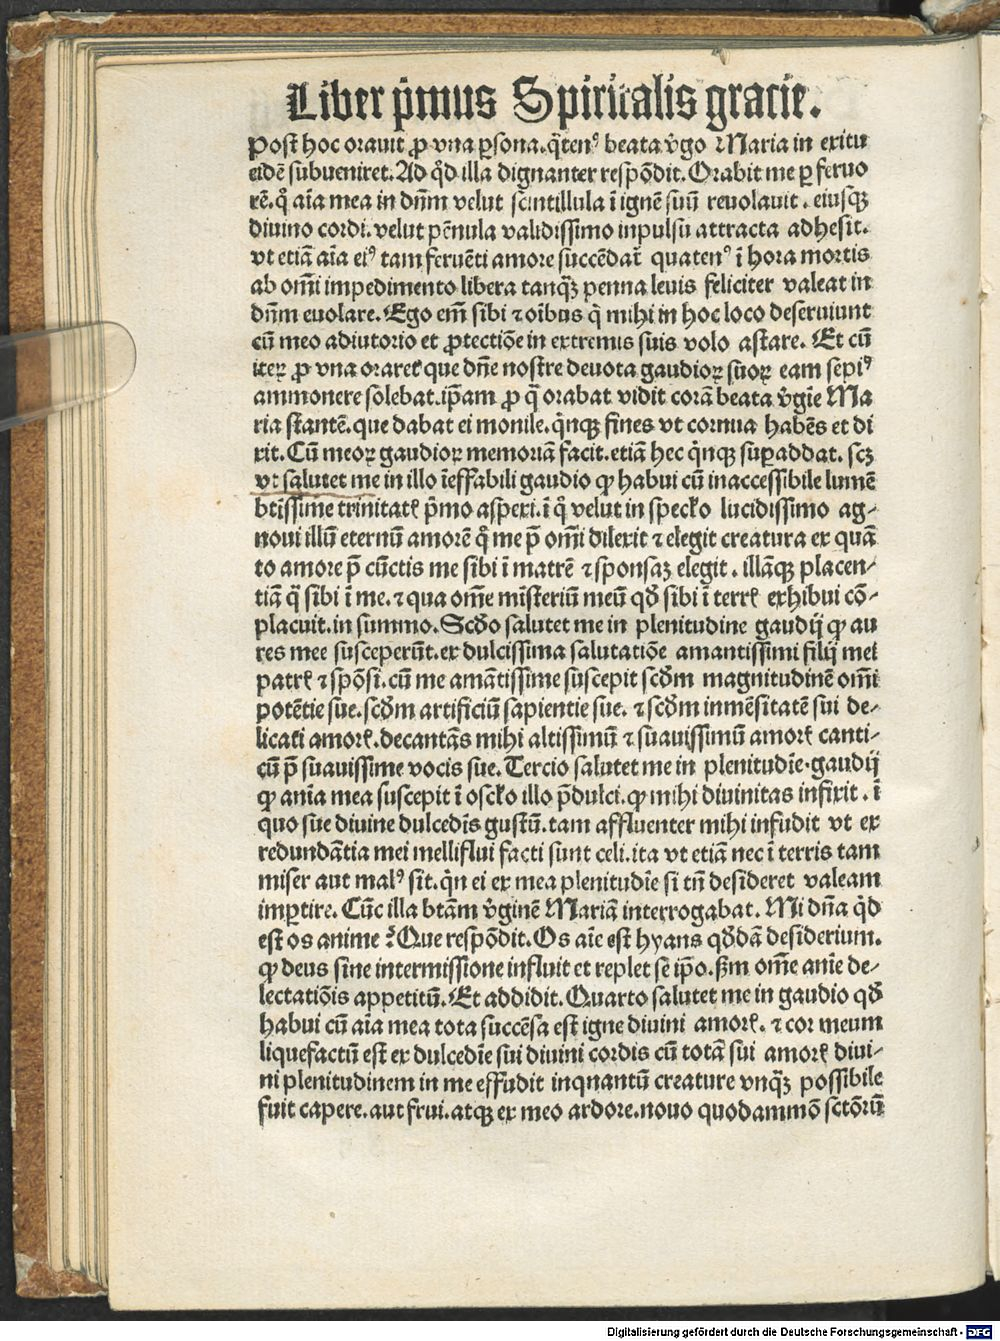 Liber p̄mus Spiritalis gracie.
Post hoc orauit ꝓ vna ꝑsona.q̄tenꝰ beata v̓go Maria in exitu
eidē subueniret. Ad qͥd illa dignanter respōdit. Orabit me ꝑ feruo
rē.qͦ aīa mea in dn̄m velut scintillula ī ignē suū reuolauit. eiusqꝫ
diuino cordi. velut pēnula validissimo inpulsu attracta adhesit.
vt etiā aīa eiꝰ tam feruēti amore succēdat᷑ quatenꝰ ī hora mortis
ab om̄i impedimento libera tanqꝫ̄ penna leuis feliciter valeat in
dn̄m euolare. Ego em̄ sibi ⁊ oībus q̄ mihi in hoc loco deseruiunt
cū meo adiutorio et ꝓtectiōe in extremis suis volo astare. Et cū
iteꝝ ꝓ vna oraretꝭ que dn̄e nostre deuota gaudioꝝ suoꝝ eam sepiꝰ
ammonere solebat.ip̄am ꝓ q̄ orabat vidit corā beata v̓gīe Ma
ria stantē.que dabat ei monile.qͥnqꝫ fines vt cornua habēs et di
xit. Cū meoꝝ gaudioꝝ memoriā facit.etiā hec qͥnqꝫ suꝑaddat. scꝫ
vt salutet me in illo īeffabili gaudio qꝙ habui cū inaccessibile lumē
btīssime trinitatꝭ p̄mo asperi.ī qͦ velut in specl̓o lucidissimo ag⸗
noui illū eternū amorē qͦ me p̄ om̄i dilexit ⁊ elegit creatura ex quā
to amore p̄ cūctis me sibi ī matrē ⁊ sponsaꝫ elegit. illāqꝫ placen⸗
tiā q̄ sibi ī me.⁊ qua om̄e misteriū meū qd̓ sibi ī terrꝭ exhibui cō⸗
placuit.in summo. Scd̓o salutet me in plenitudine gaudij ꝙ au
res mee susceperūt.ex dulcissima salutatiōe amantissimi filij mei
patrꝭ ⁊ spōsi.cū me amātissime suscepit scd̓m magnitudinē om̄i
potētie sue.scd̓m artificiū sapientie sue. ⁊ scd̓m inmēsitatē sui de⸗
licati amorꝭ.decantās mihi altissimū ⁊ suauissimū amorꝭ canti⸗
cū p̄ suauissime vocis sue. Tercio salutet me in plenitudīe gaudij
ꝙ anīa mea suscepit ī oscl̓o illo p̄dulci.ꝙ mihi diuinitas infixit. ī
quo sue diuine dulcedīs gustū.tam affluenter mihi infudit vt ex
redundātia mei melliflui facti sunt celi.ita vt etiā nec ī terris tam
miser aut malꝰ sit.qͥn ei ex mea plenitudīe si tn̄ desideret valeam
imꝑtire. Tūc illa btām v̓ginē Mariā interrogabat. Mi dn̄a qͥd
est os anime? Que respōdit. Os aīe est hyans qd̓dā desiderium.
ꝙ deus sine intermissione influit et replet se ip̄o.ẜm om̄e anīe de⸗
lectatiōis appetitū. Et addidit. Quarto salutet me in gaudio qd̓
habui cū aīa mea tota succēsa est igne diuini amorꝭ. ⁊ cor meum
liquefactū est ex dulcedīe sui diuini cordis cū totā sui amorꝭ diui⸗
ni plenitudinem in me effudit inquantū creature vnqꝫ̄ possibile
fuit capere.aut frui.atqꝫ ex meo ardore.nouo quodammō sctōrū
Digitalisierung gefördert durch die Deutsche Forschungsgemeinschaft - DFG